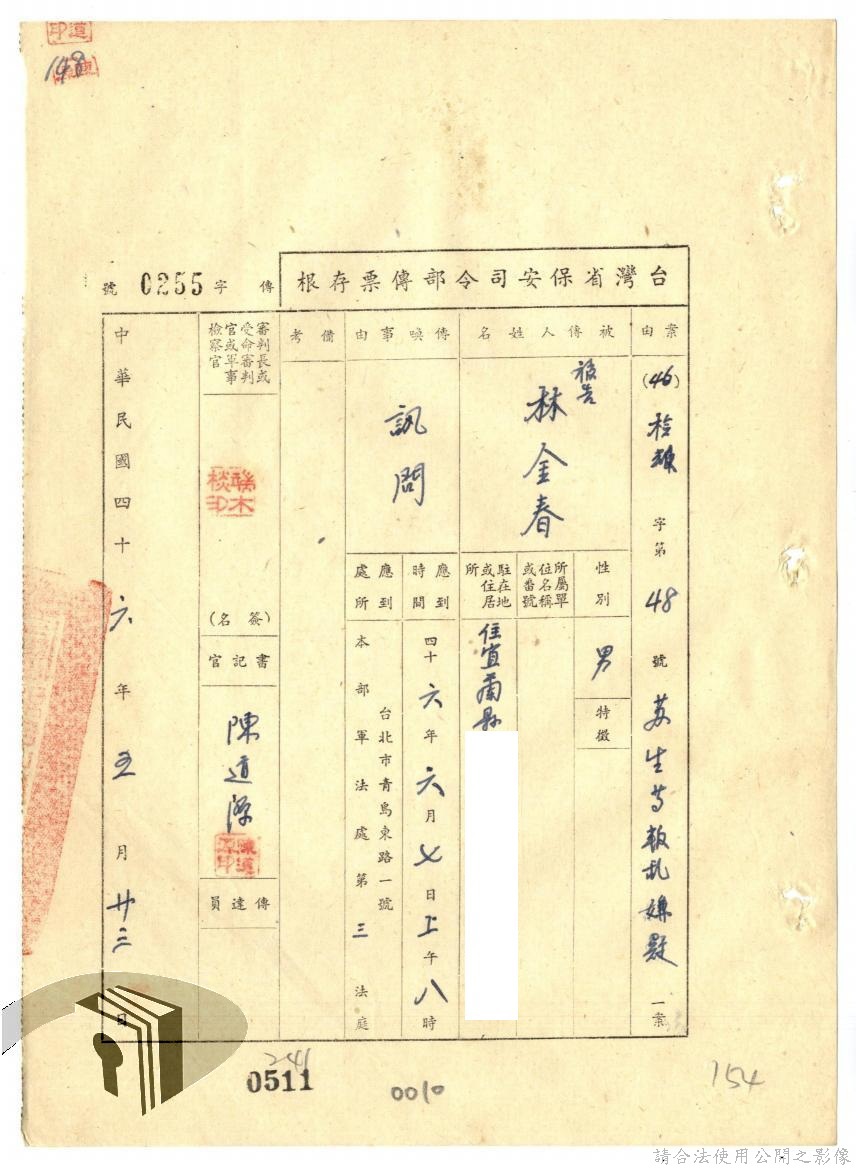 台灣省保安司令部傳票存根
傳字 0255 號
案由
(46)
字第
48
號
蘇生等叛亂嫌疑
一案
被傳人姓名
被告
林金春
性別
男
特徵
所屬單位名稱或番號
駐在地或住居所
住宜蘭縣
傳喚事由
訊問
應到時間
四十六年六月七日上午八時
應到處所
台北市青島東路一號
本部軍法處第三法庭
備考
審判長或受命審判官或軍事檢察官
(簽名)
書記官
陳道源
傳達員
中華民國四十六年五月廿三日
0511
241
0010
154
請合法使用公開之影像